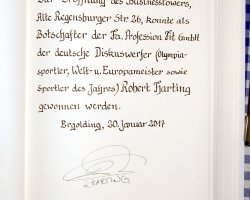 Zur Eröffnung des Businesstowers,
Alte Regensburger Str. 26, konnte als
Botschafter der Fa. Profession Fit GmbH
der deutsche Diskuswerfer (Olympia-
sportler, Welt- u. Europameister sowie
Sportler des Jahres) Robert Harting
gewonnen werden.
Ergolding, 30. Januar 2017
R. HARTING